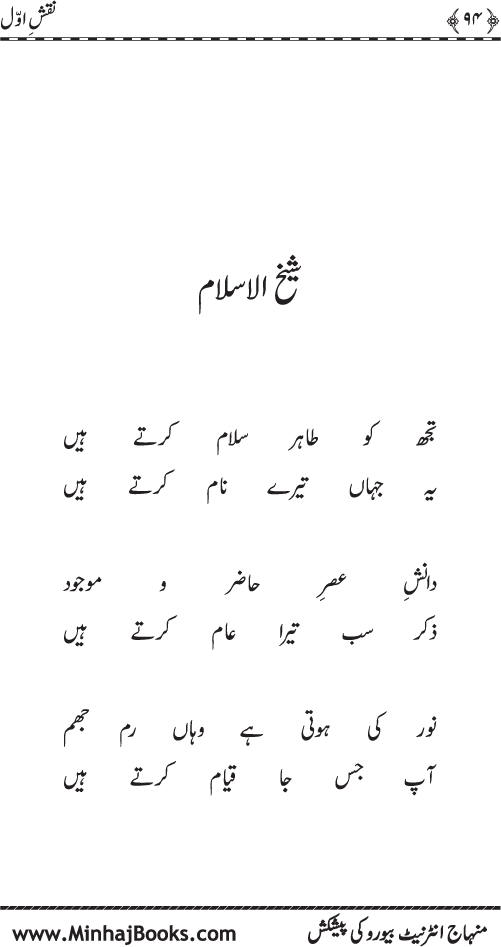 ﴿۹۴﴾ نقشِ اوّل
شیخ الاسلام
تجھ کو طاہر سلام کرتے ہیں
یہ جہاں تیرے نام کرتے ہیں
دانشِ عصرِ حاضر و موجود
ذکر سب تیرا عام کرتے ہیں
نور کی ہوتی ہے وہاں رم جھم
آپ جس جا قیام کرتے ہیں
منہاج انٹرنیٹ بیورو کی پیشکش www.MinhajBooks.com